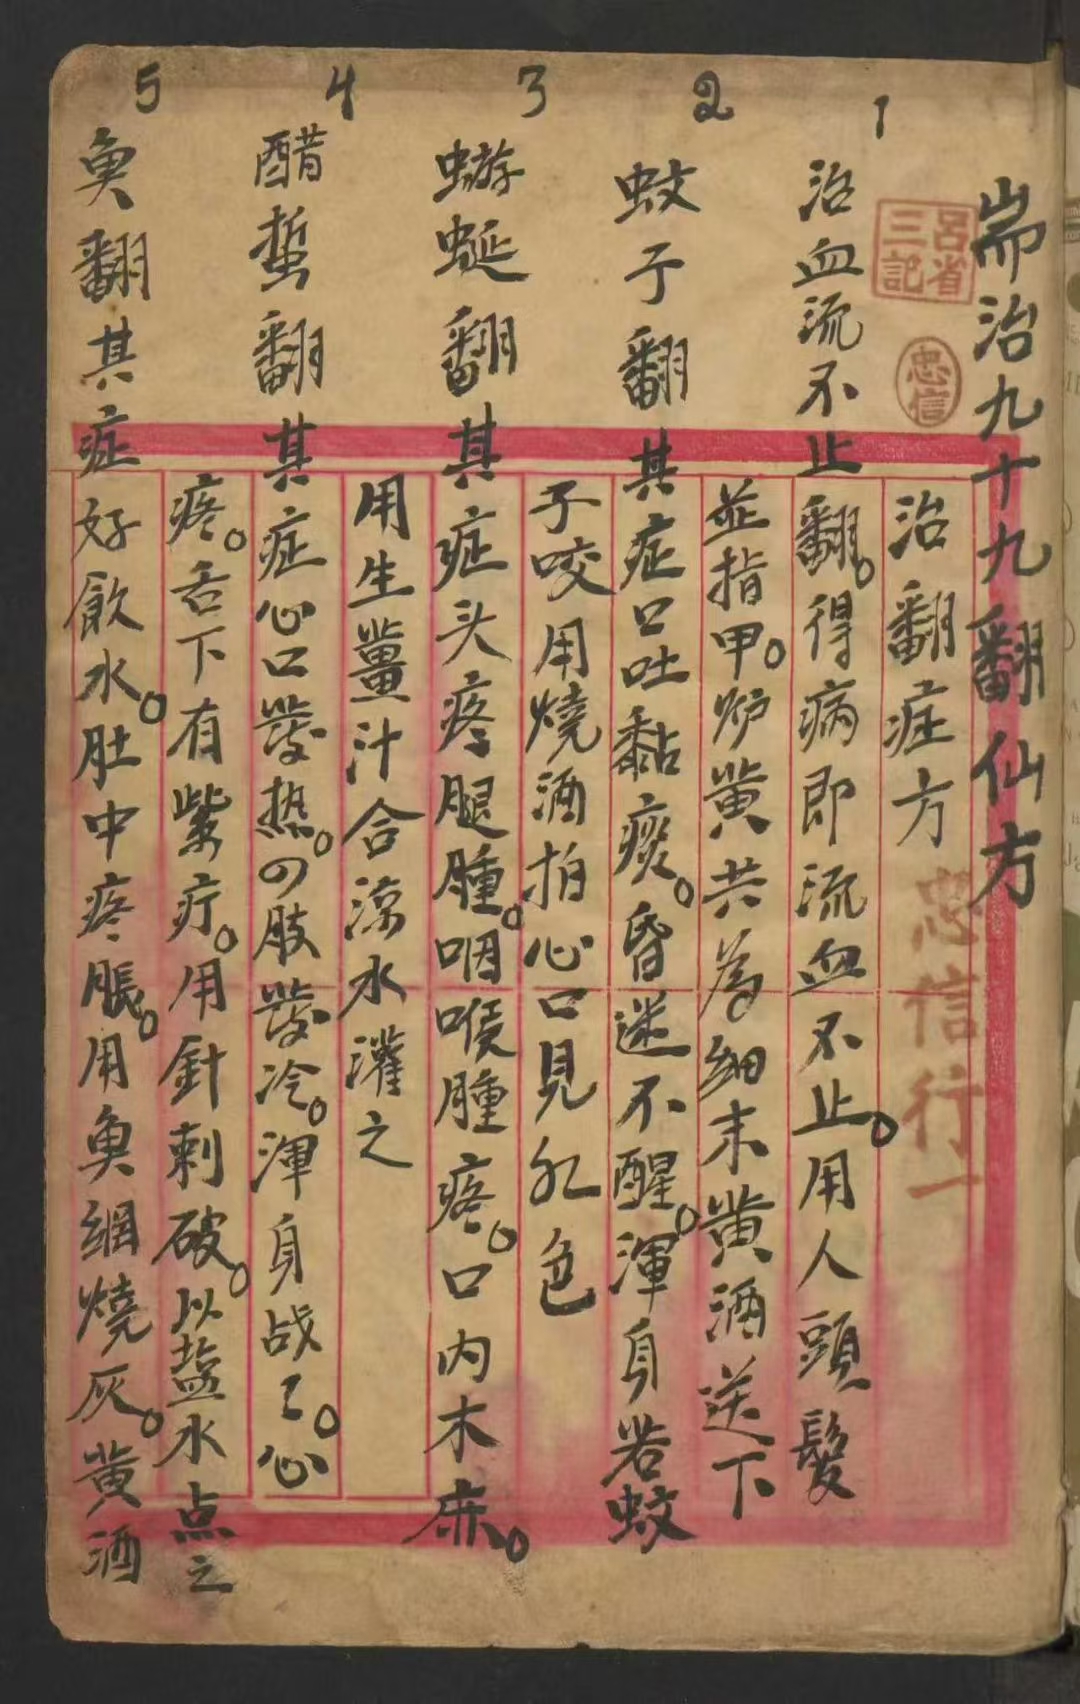 耑治九十九翻仙方
呂省三記
忠信
忠信行一
治翻症方
1
治血流不止翻。得病即流血不止。用人頭髮
並指甲。炉黄共為细末黄酒送下
2
蚊子翻其症口吐黏痰。昏迷不醒。渾身若蚊
子咬用燒酒拍心口見紅色
3
蝣蜒翻其症头疼腿腫。咽喉腫疼。口内木麻。
用生薑汁合涼水灌之
4
醋蜇翻其症心口發热。四肢發冷。渾身战了。心
疼。舌下有紫疔。用針刺破。以盐水点之
5
奐翻其症好飲水。肚中疼脹。用奐綱燒灰。黄酒